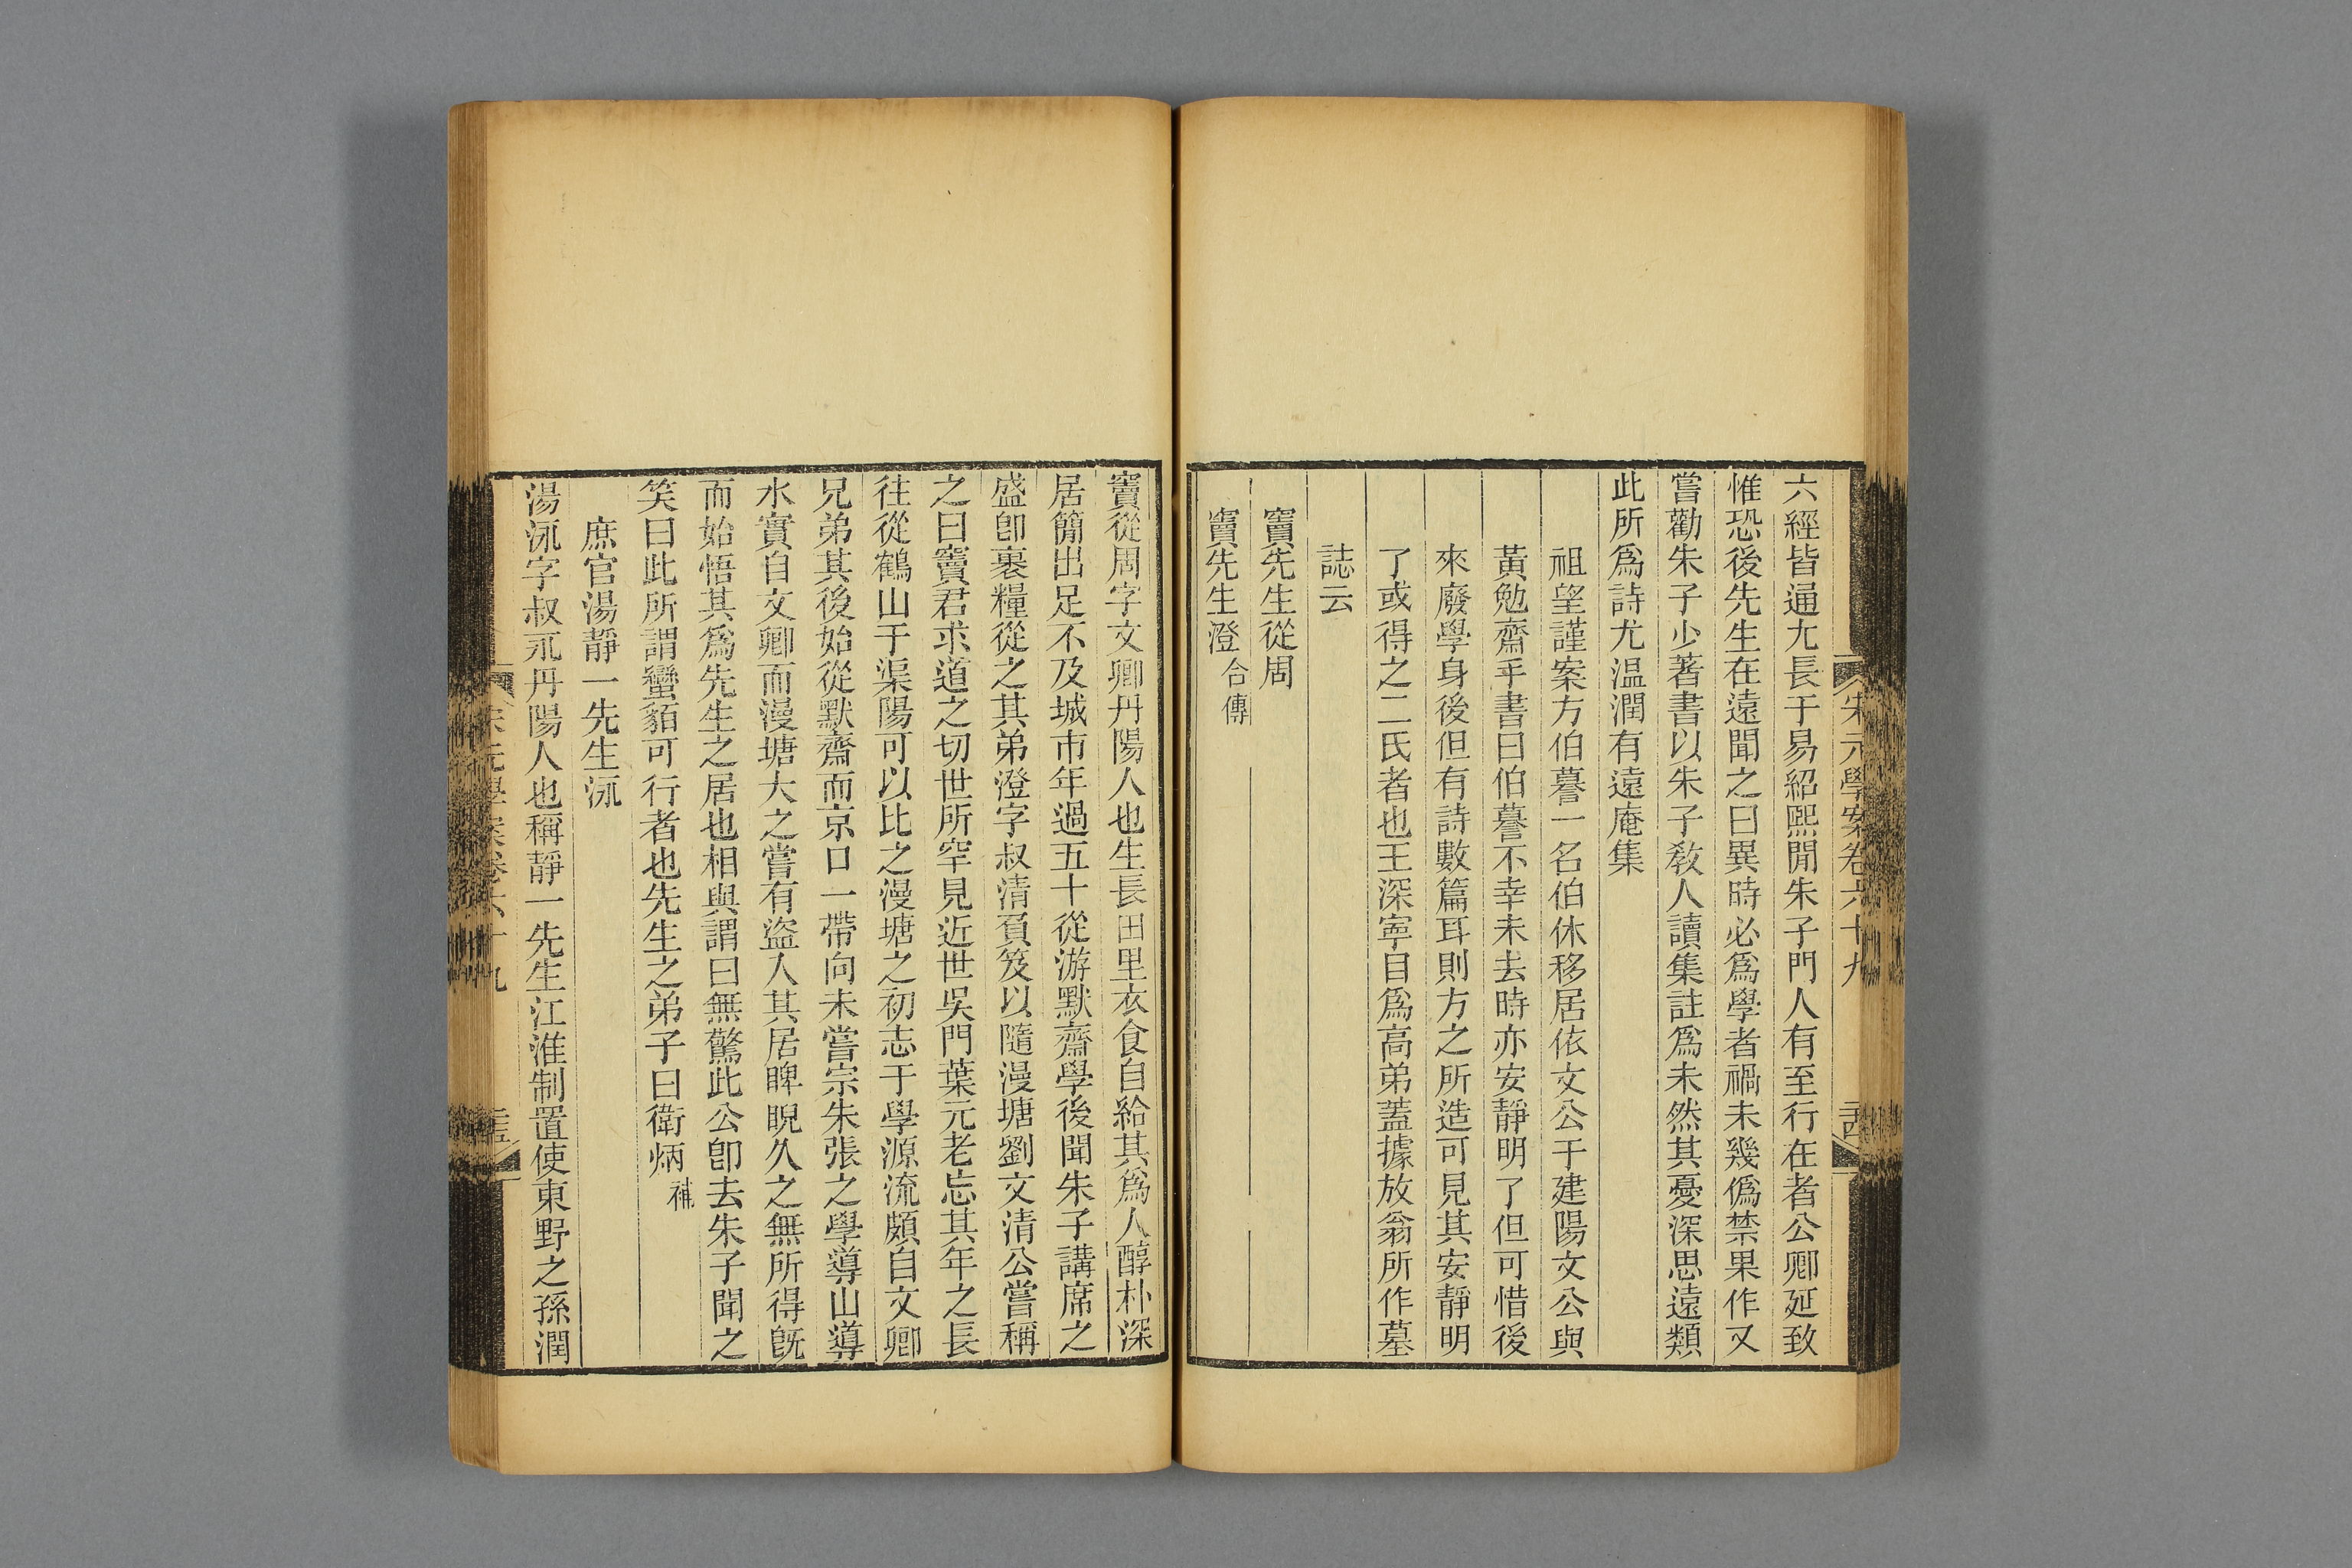 宋元學案卷六十九
六經皆通尢長于易紹熙閒朱子門人有至行在者公卿延致
惟恐後先生在遠聞之曰異時必爲學者禍未幾僞禁果作又
嘗勸朱子少著書以朱子敎人讀集註爲未然其憂深思遠類
此所爲詩尤温潤有遠庵集
祖望謹案方伯謩一名伯休移居依文公于建陽文公與
黃勉齋手書曰伯謩不幸未去時亦安靜明了但可惜後
來廢學身後但有詩數篇耳則方之所造可見其安靜明
了或得之二氏者也王深寧目爲高弟蓋據放翁所作墓
誌云
竇先生從周
竇先生澄合傳
竇從周字文卿丹陽人也生長田里衣食自給其爲人醇朴深
居簡出足不及城市年過五十從游默齋學後聞朱子講席之
盛卽裹糧從之其弟澄字叔清負笈以隨漫塘劉文清公嘗稱
之曰竇君求道之切世所罕見近世吳門葉元老忘其年之長
往從鶴山于渠陽可以比之漫塘之初志于學源流頗自文卿
兄弟其後始從默齋而京口一帶向未嘗宗朱張之學導山導
水實自文卿而漫塘大之嘗有盜入其居睥睨久之無所得旣
而始悟其爲先生之居也相與謂曰無驚此公卽去朱子聞之
笑曰此所謂蠻貊可行者也先生之弟子曰衛炳補
庶官湯靜一先生泳
湯泳字叔永丹陽人也稱靜一先生江淮制置使東野之孫潤
宋元學案卷六十九